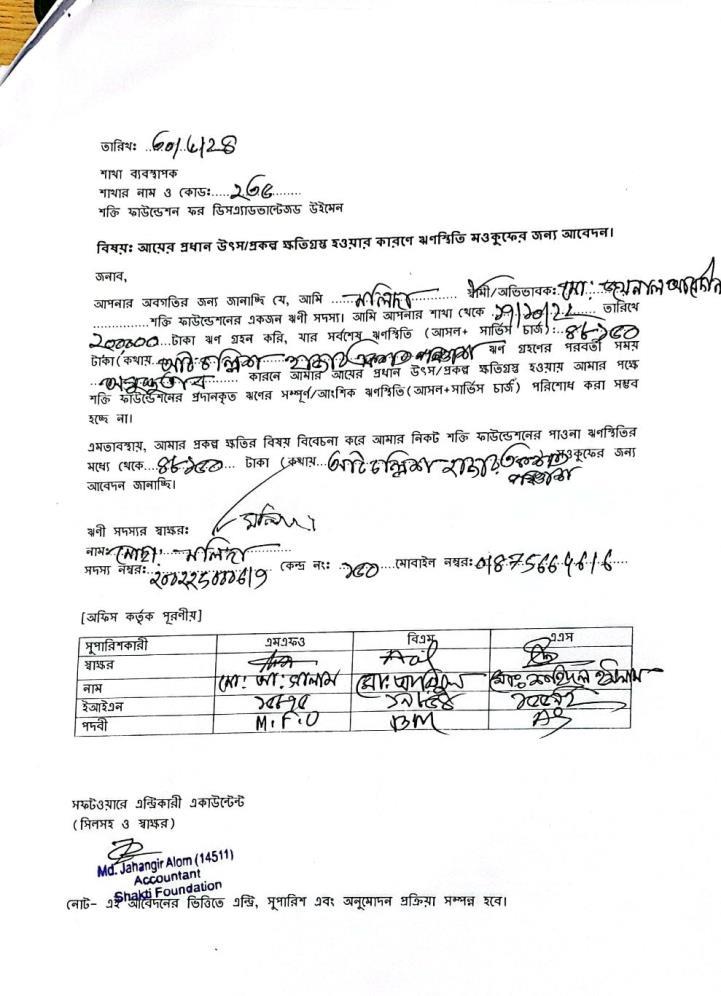 তারিখঃ ..৩০/৬/২৪
শাখা ব্যবস্থাপক
শাখার নাম ও কোডঃ.....২৬৫.........
শক্তি ফাউন্ডেশন ফর ডিসএ্যাডভান্টেজড উইমেন
বিষয়ঃ আয়ের প্রধান উৎস/প্রকল্প ক্ষতিগ্রস্থ হওয়ার কারণে ঋণস্থিতি মওকুফের জন্য আবেদন।
জনাব,
আপনার অবগতির জন্য জানাচ্ছি যে, আমি ....মলিদা........... স্বামী/অভিভাবকঃ মো: জয়নাল আবেদীন
..............শক্তি ফাউন্ডেশনের একজন ঋণী সদস্য। আমি আপনার শাখা থেকে .../১০/২২...... তারিখে
২০০০০০...টাকা ঋণ গ্রহন করি, যার সর্বশেষ ঋণস্থিতি (আসল+ সার্ভিস চার্জ):..৪৮১৫০
টাকা(কথায়..আটচল্লিশ হাজার একশত পঞ্চাশ ঋণ গ্রহণের পরবর্তী সময়
..অসুস্থতার.......... কারনে আমার আয়ের প্রধান উৎস/প্রকল্প ক্ষতিগ্রস্থ হওয়ায় আমার পক্ষে
শক্তি ফাউন্ডেশনের প্রদানকৃত ঋণের সম্পূর্ণ/আংশিক ঋণস্থিতি(আসল+সার্ভিস চার্জ) পরিশোধ করা সম্ভব
হচ্ছে না।
এমতাবস্থায়, আমার প্রকল্প ক্ষতির বিষয় বিবেচনা করে আমার নিকট শক্তি ফাউন্ডেশনের পাওনা ঋণস্থিতির
মধ্যে থেকে...৪৮১৫০... টাকা (কথায়...আটচল্লিশ হাজার একশত পঞ্চাশ মওকুফের জন্য
আবেদন জানাচ্ছি।
ঋণী সদস্যর স্বাক্ষরঃ মলিদা
নামঃ মোছা: মলিদা
সদস্য নম্বরঃ... কেন্দ্র নংঃ .১৫০....মোবাইল নম্বরঃ
[অফিস কর্তৃক পূরণীয়]
সুপারিশকারী এমএফও বিএম এএস
স্বাক্ষর
নাম মো: আ: সালাম মো:
ইআইএন
পদবী M.F.O BM AS
সফটওয়ারে এন্ট্রিকারী একাউন্টেন্ট
(সিলসহ ও স্বাক্ষর)
Md. Jahangir Alom (14511)
Accountant
Shakti Foundation
নোট- এই আবেদনের ভিত্তিতে এন্ট্রি, সুপারিশ এবং অনুমোদন প্রক্রিয়া সম্পন্ন হবে।